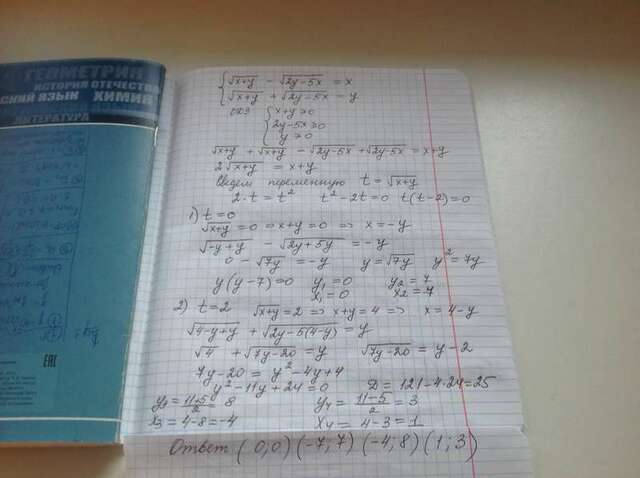 ГЕОМЕТРИЯ
ИСТОРИЯ ОТЕЧЕСТВА
СКИЙ ЯЗЫК ХИМИЯ
ЛИТЕРАТУРА
EAC
{ √x+y - √2y-5x = x
{ √x+y + √2y-5x - y
ОДЗ { x+y ≥ 0
2y-5x ≥ 0
y ≥ 0
√x+y + √x+y - √2y-5x + √2y-5x = x+y
2√x+y = x+y
Введем переменную t = √x+y
2·t = t² t²-2t=0 t(t-2)=0
1) t=0
√x+y = 0 => x+y = 0 => x = -y
√-y+y - √2y+5y = -y
0 - √7y = -y y = √7y y² = 7y
y(y-7)=0 y₁ = 0 y₂ = 7
x₁ = 0 x₂ = 7
2) t=2 √x+y = 2 => x+y = 4 => x = 4-y
√4-y+y + √2y-5(4-y) = y
√4 + √7y-20 = y √7y-20 = y-2
7y-20 = y²-4y+4
y²-11y+24=0 D = 121-4·24=25
y₃ = 11+5/2 = 8 y₄ = 11-5/2 = 3
x₃ = 4-8 = -4 x₄ = 4-3 = 1
Ответ (0;0) (-7;7) (-4;8) (1;3)